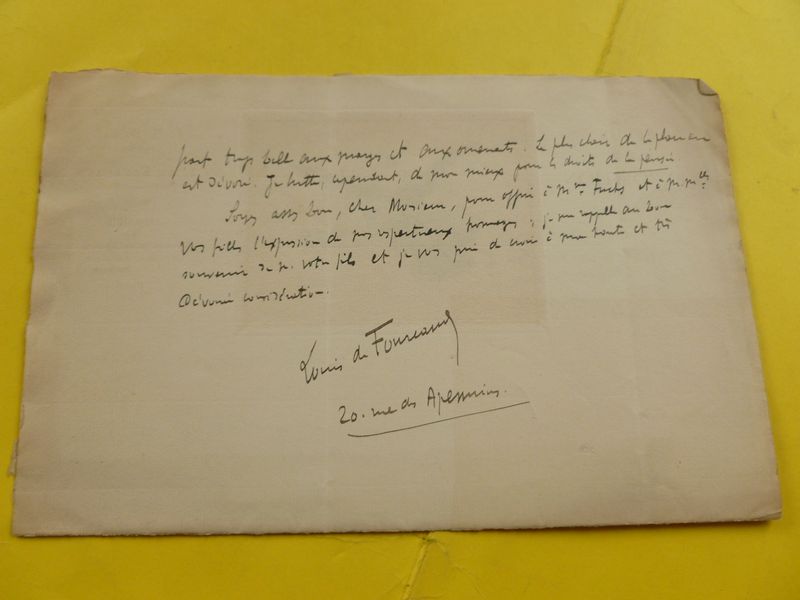 part trop belle aux marges et aux ornements. Le plus clair de
est dévoré. Je lutte, cependant, de mon mieux pour les droits de la pensée
Soyez assez bon, cher Monsieur, pour offrir à Mme Fuchs et à M.Melles
vos filles l'expression de mes respectueux hommages; je me rappelle au bon
souvenir de M. votre fils et je vous prie de croire à ma haute et très
dévouée considération.
Louis de Fourcaud
20. rue des Apennins.